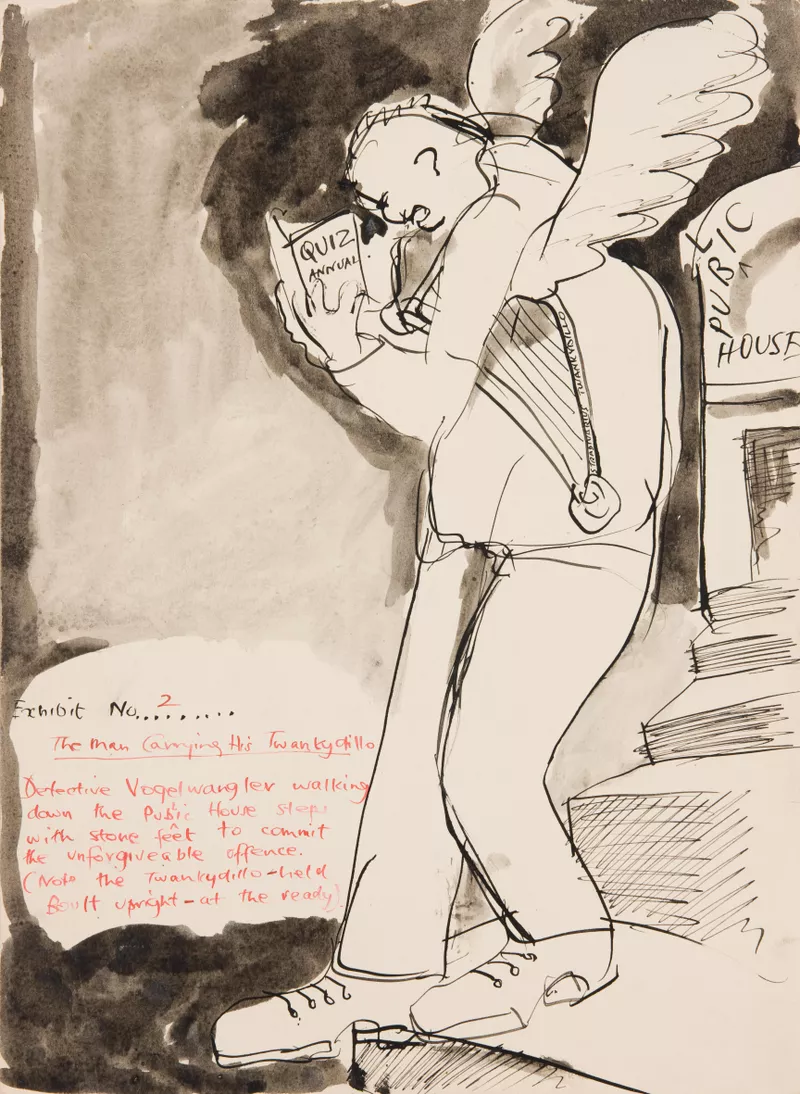 QUIZ
ANNUAL
TWANKYDILLO
PUBLIC
HOUSE
Exhibit No. 2 .........
The Man Carrying His Twankydillo
Defective Vogelwangler walking
down the Public House steps
with stone feet to commit
the unforgiveable offence.
(Note the Twankydillo-held
Boult upright - at the ready)